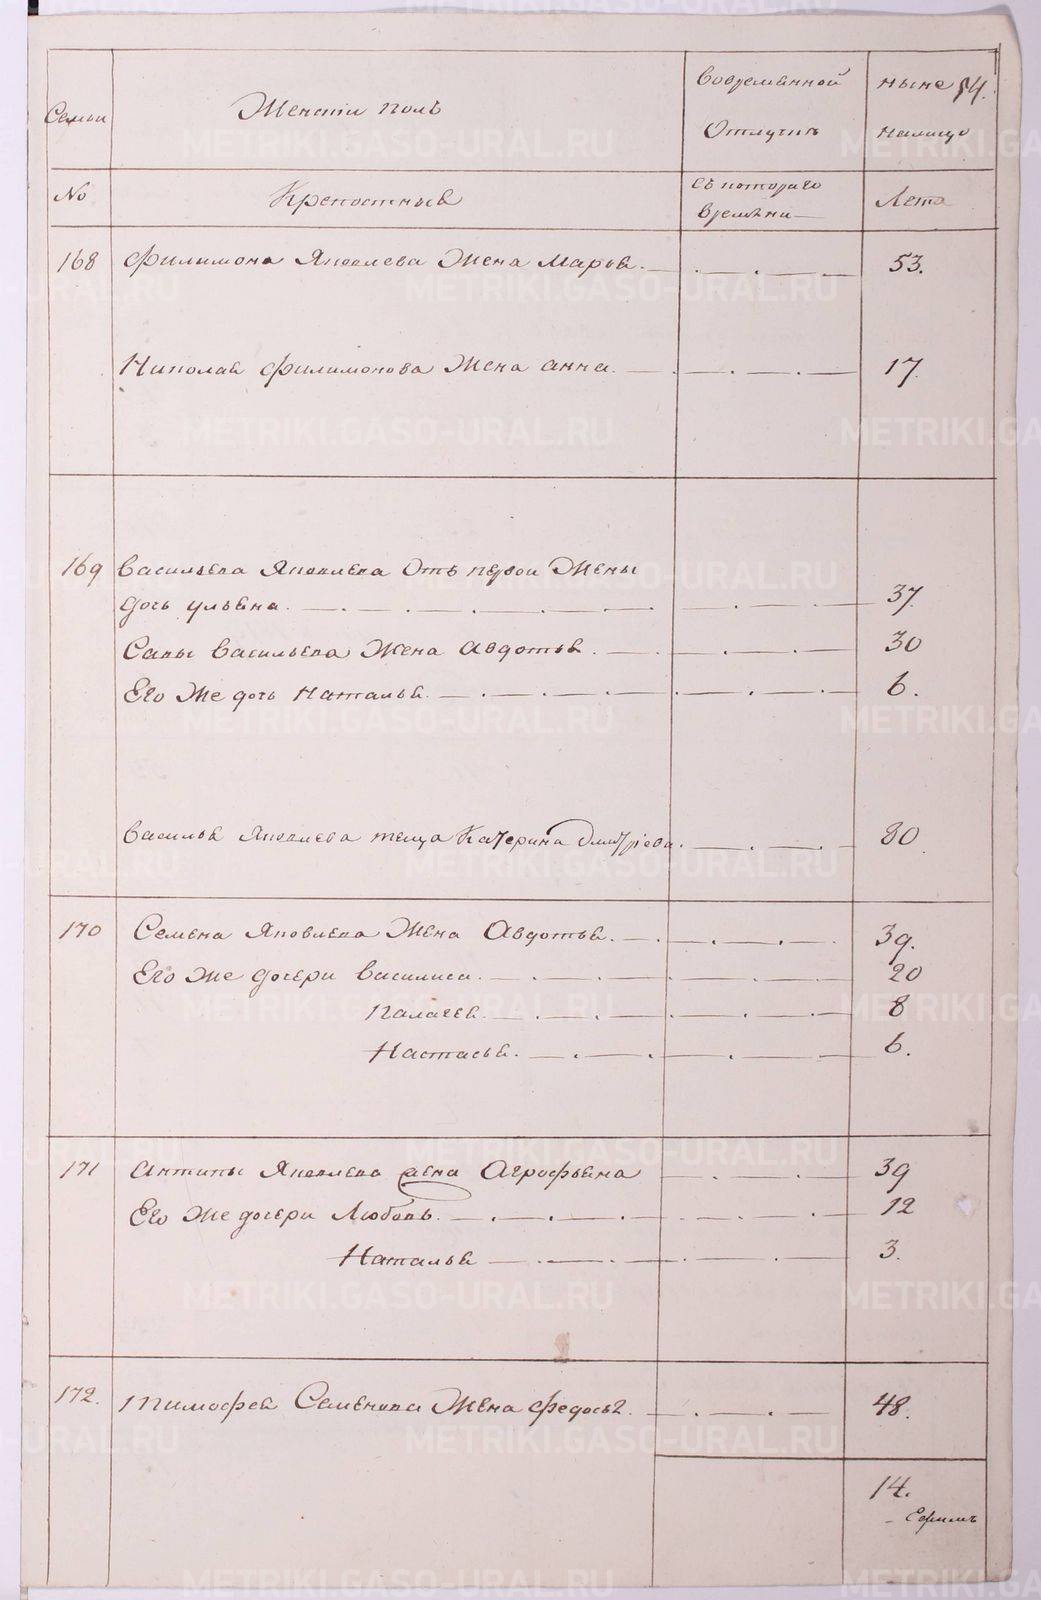 METRIKI.GASO-URAL.RU
Семьи
Женскiй полъ
Вовременной
Отлучкѣ
ныне 54.
налицо
No
Крепостныя
съ котораго
времѣни
Лета
168 Филимона Яковлева Жена Марья 53.
Николая Филимонова Жена анна 17.
169 Васильева Яковлева Отъ первой Жены
дочь ульяна 37.
Савы Васильева Жена Авдотья 30
Его Же дочь Наталья 6.
Василья Яковлева теща Катерина Дмитрiева 80
170 Семена Яковлева Жена Авдотья 39.
Его Же дочери василиса 20
Палагея 8
Настасья 6.
171 антипы Яковлева жена Агрофьена 39
Его Же дочери Любовь 12
Наталья 3.
172. Тимофея Семенова Жена Федосья 48.
14.
Ефимъ